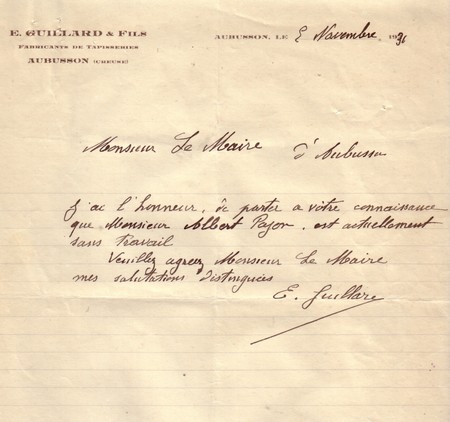 E. GUILLARD & FILS
FABRICANTS DE TAPISSERIES
AUBUSSON (CREUSE)
AUBUSSON, LE 5 Novembre 1931
Monsieur Le Maire
d'Aubusson
J'ai l'honneur, de porter a votre connaissance
que Monsieur Albert Pajon, est actuellement
sans travail
Veuillez agreez Monsieur Le Maire
mes salutations distinguées
E. Guillard